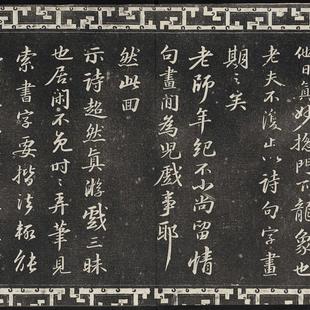 他日真妙總門下龍象也
老夫不復止以詩句字畫
期之矣
老師年紀不小尚留情
句畫間為兒戲事耶
然此回
示詩超然真游戲三昧
也居閑不免時時弄筆見
索書字要楷法極能